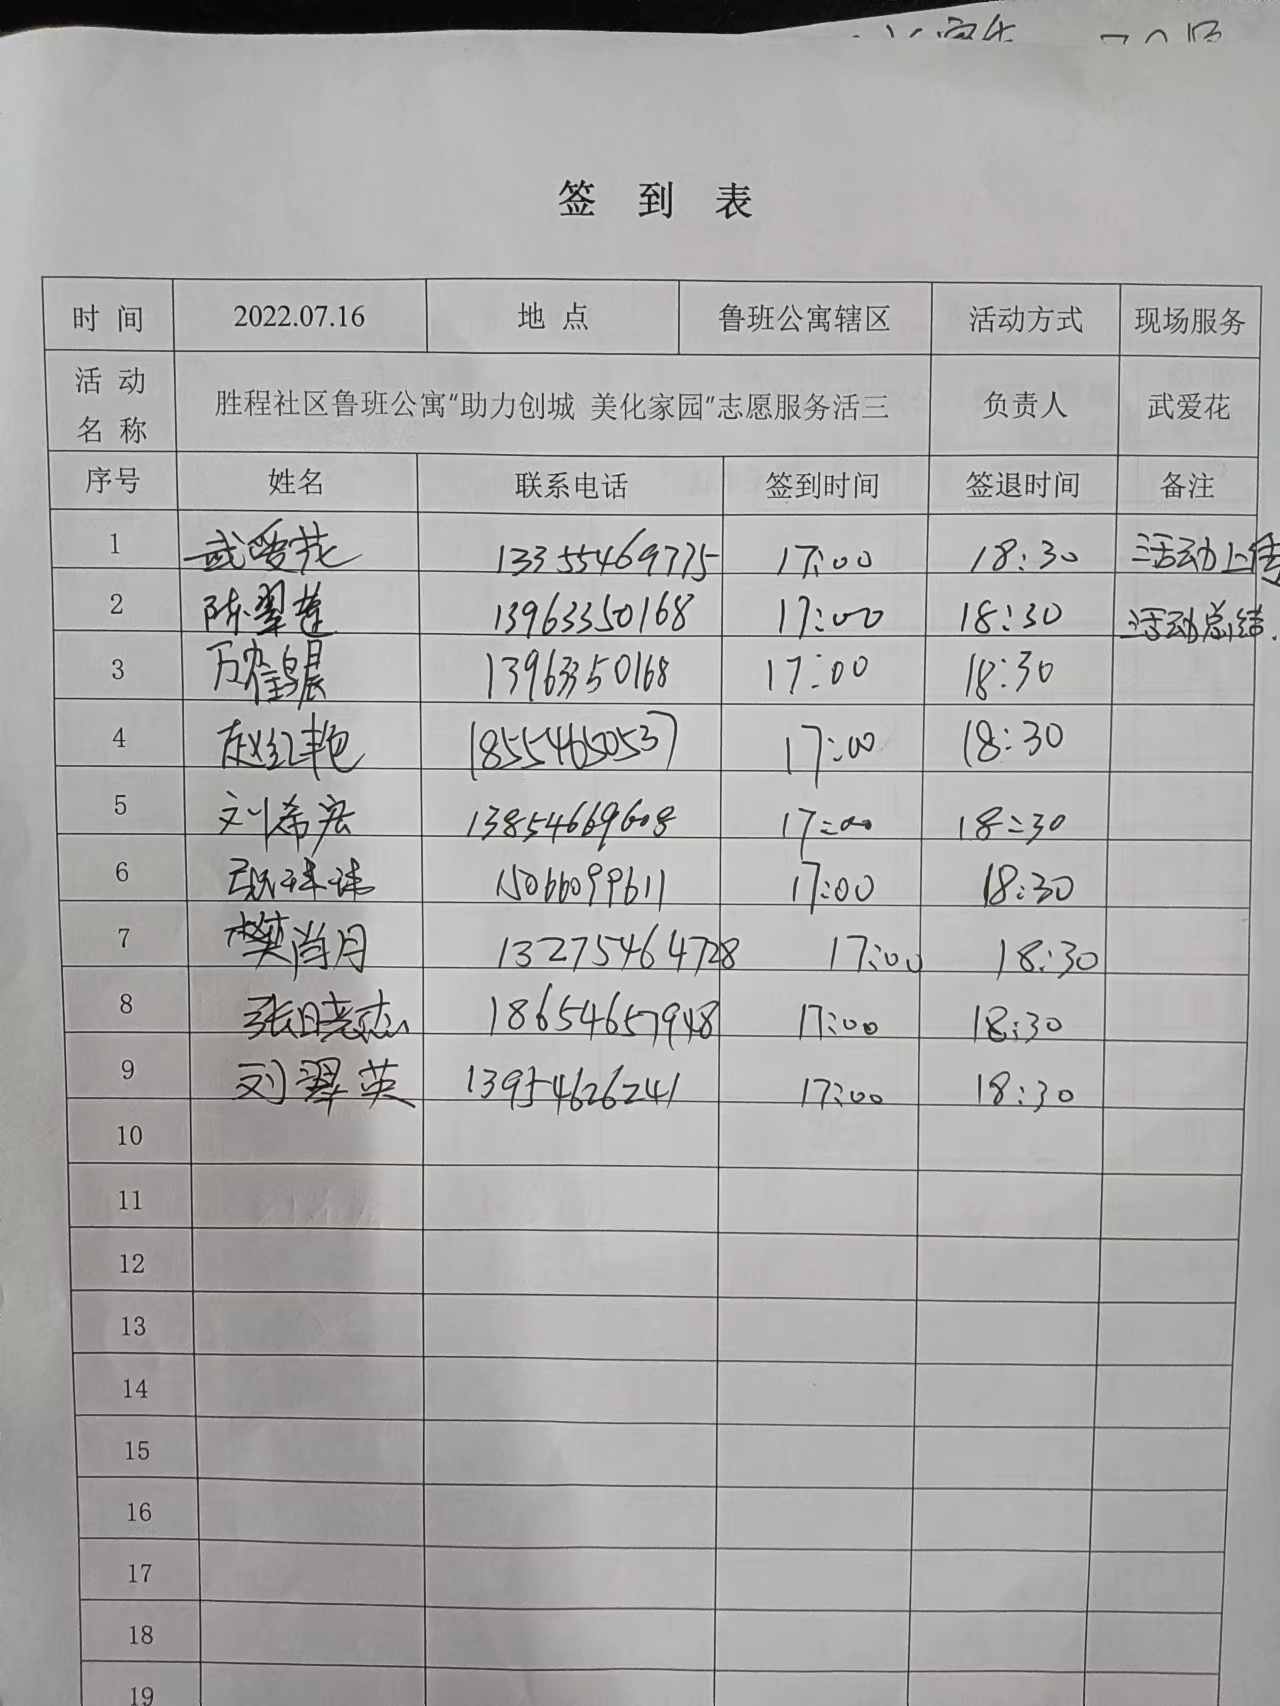 签 到 表
时 间 2022.07.16 地 点 鲁班公寓辖区 活动方式 现场服务
活 动 名 称 胜程社区鲁班公寓“助力创城 美化家园”志愿服务活三 负责人 武爱花
序号 姓名 联系电话 签到时间 签退时间 备注
1 武爱花 13355469775 17:00 18:30 活动上传
2 陈翠莲 13963350168 17:00 18:30 活动总结.
3 万佳晨 13963350168 17:00 18:30
4 赵红艳 18554650537 17:00 18:30
5 刘希宏 13854669608 17:00 18:30
6 15066099611 17:00 18:30
7 樊尚月 13275464728 17:00 18:30
8 张晓杰 18654657948 17:00 18:30
9 刘翠英 13954626241 17:00 18:30
10
11
12
13
14
15
16
17
18
19